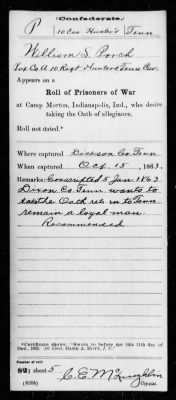 Confederate.
P 10 Cav Hunter's Tenn
William S. Porch
Co. A 10 Regt. Tenn Cav.
Appears on a
Roll of Prisoners of War
at Camp Morton, Indianapolis, Ind., who desire
taking the Oath of allegiance.
Roll not dated.*
Where captured Dickson Co. Tenn
When captured Oct. 15, 1863.
Remarks: Conscripted 5 Jan. 1863
Dixon Co. Tenn. wants to
take the Oath return to Tenn
remain a loyal man.
Recommended
*Certificate shows: "Sworn to before me this 11th day of
Dec., 1863. 1st Lieut. MARK A. HOYT, J. C."
Number of roll:
891 sheet 5
C. E. McLaughlin
Copyist.